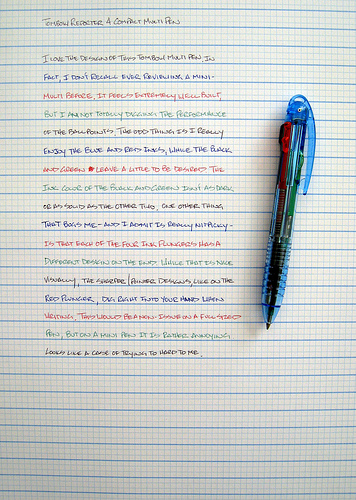 TOMBOW REPORTER 4 COMPACT MULTI PEN
I LOVE THE DESIGN OF THIS TOMBOW MULTI PEN, IN
FACT, I DON'T RECALL EVER REVIEWING A MINI-
MULTI BEFORE, IT FEELS EXTREMELY WELL BUILT,
BUT I AM NOT TOTALLY DIGGING THE PERFORMANCE
OF THE BALLPOINTS. THE ODD THING IS I REALLY
ENJOY THE BLUE AND RED INKS, WHILE THE BLACK
AND GREEN LEAVE A LITTLE TO BE DESIRED. THE
INK COLOR OF THE BLACK AND GREEN ISN'T AS DARK
OR AS SOLID AS THE OTHER TWO, ONE OTHER THING
THAT BUGS ME - AND I ADMIT IS REALLY NITPICKY -
IS THAT EACH OF THE FOUR INK PLUNGERS HAS A
DIFFERENT DESIGN ON THE END. WHILE THAT IS NICE
VISUALLY, THE SHARPER/POINTER DESIGNS, LIKE ON THE
RED PLUNGER, DIG RIGHT INTO YOUR HAND WHEN
WRITING, THIS WOULD BE A NON-ISSUE ON A FULL SIZED
PEN, BUT ON A MINI PEN IT IS RATHER ANNOYING
LOOKS LIKE A CASE OF TRYING TO HARD TO ME.